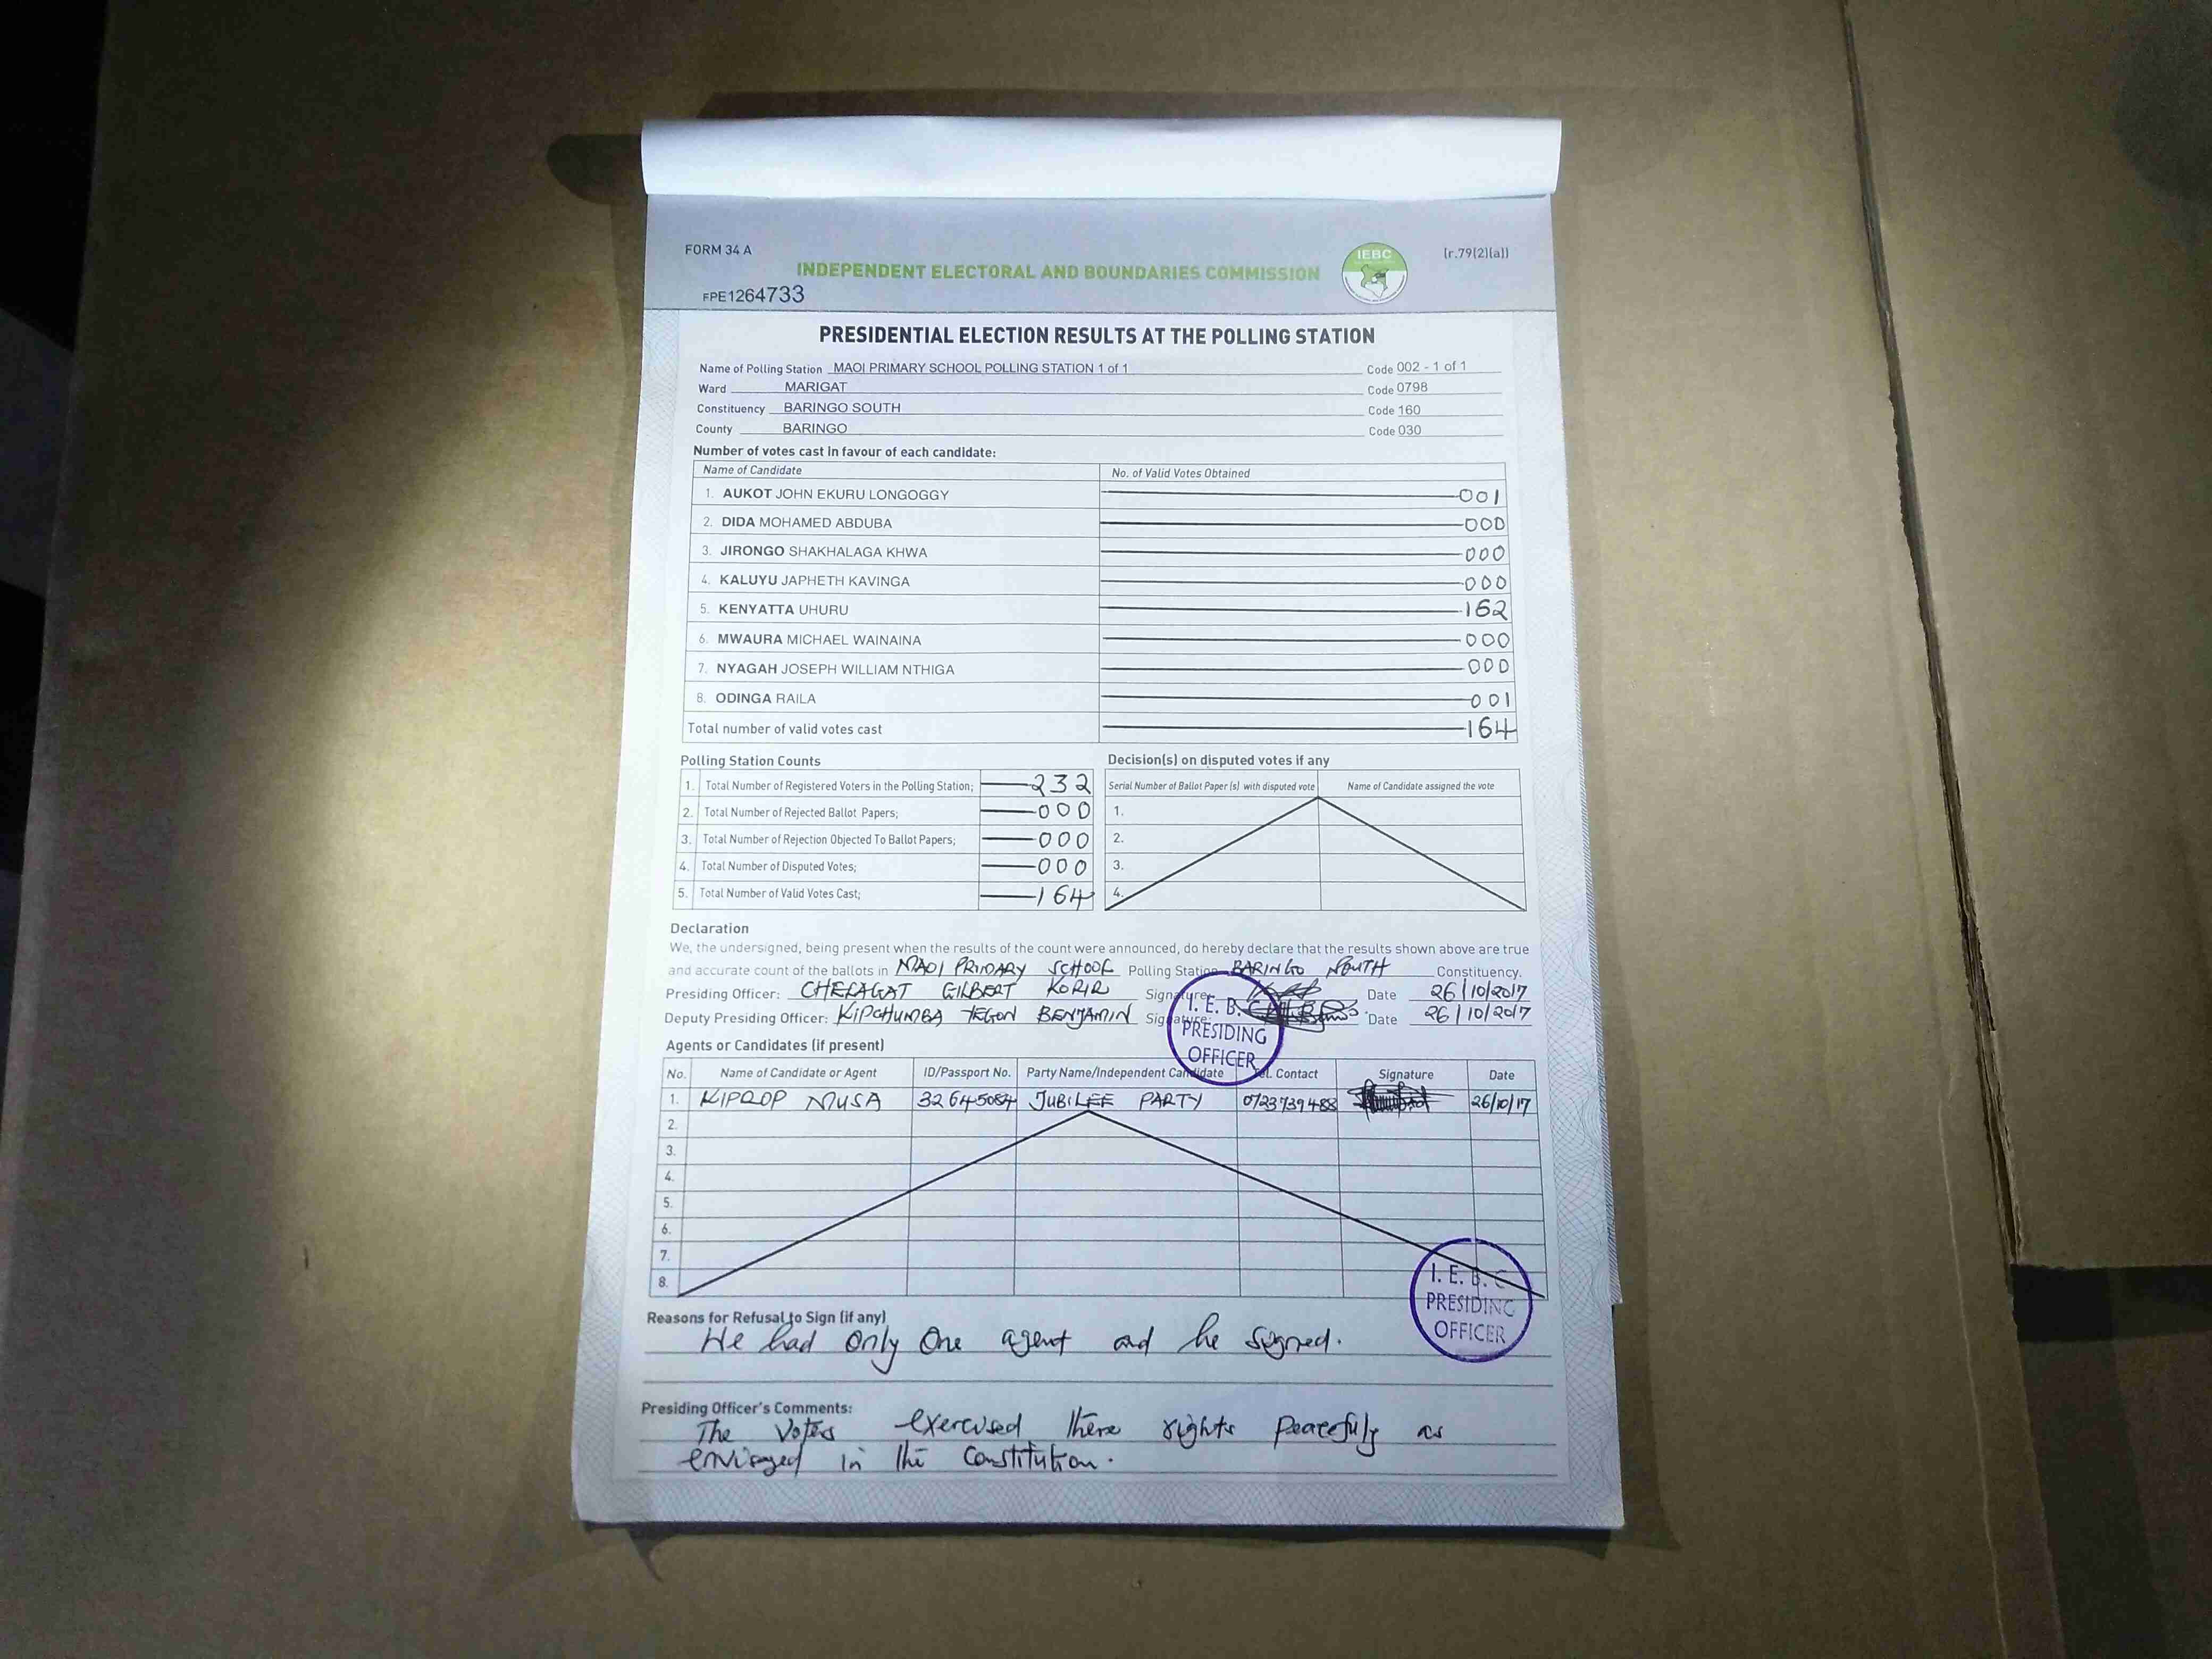 FORM 34 A
(r.79(2)(a))
INDEPENDENT ELECTORAL AND BOUNDARIES COMMISSION
IEBC
FPE1264733
PRESIDENTIAL ELECTION RESULTS AT THE POLLING STATION
Name of Polling Station MAOI PRIMARY SCHOOL POLLING STATION 1 of 1 Code 002 - 1 of 1
Ward MARIGAT Code 0798
Constituency BARINGO SOUTH Code 160
County BARINGO Code 030
Number of votes cast in favour of each candidate:
Name of Candidate No. of Valid Votes Obtained
1. AUKOT JOHN EKURU LONGOGGY 001
2. DIDA MOHAMED ABDUBA 000
3. JIRONGO SHAKHALAGA KHWA 000
4. KALUYU JAPHETH KAVINGA 000
5. KENYATTA UHURU 162
6. MWAURA MICHAEL WAINAINA 000
7. NYAGAH JOSEPH WILLIAM NTHIGA 000
8. ODINGA RAILA 001
Total number of valid votes cast 164
Polling Station Counts
1. Total Number of Registered Voters in the Polling Station; 232
2. Total Number of Rejected Ballot Papers; 000
3. Total Number of Rejection Objected To Ballot Papers; 000
4. Total Number of Disputed Votes; 000
5. Total Number of Valid Votes Cast; 164
Decision(s) on disputed votes if any
Serial Number of Ballot Paper (s) with disputed vote Name of Candidate assigned the vote
1.
2.
3.
4.
Declaration
We, the undersigned, being present when the results of the count were announced, do hereby declare that the results shown above are true
and accurate count of the ballots in MAOI PRIMARY SCHOOL Polling Station BARINGO SOUTH Constituency.
Presiding Officer: CHELAGAT GILBERT KORIR Signature: Date 26/10/2017
Deputy Presiding Officer: KIPCHUMBA TEGON BENJAMIN Signature: Date 26/10/2017
I. E. B. C
PRESIDING
OFFICER
Agents or Candidates (if present)
No. Name of Candidate or Agent ID/Passport No. Party Name/Independent Candidate Tel. Contact Signature Date
1. KIPROP MUSA 32645084 JUBILEE PARTY 0723739488 26/10/17
2.
3.
4.
5.
6.
7.
8.
I. E. B. C
PRESIDING
OFFICER
Reasons for Refusal to Sign (if any)
We had only One agent and he signed.
Presiding Officer's Comments:
The Voters exercised there rights peacefuly as
envisaged in the Constitution.